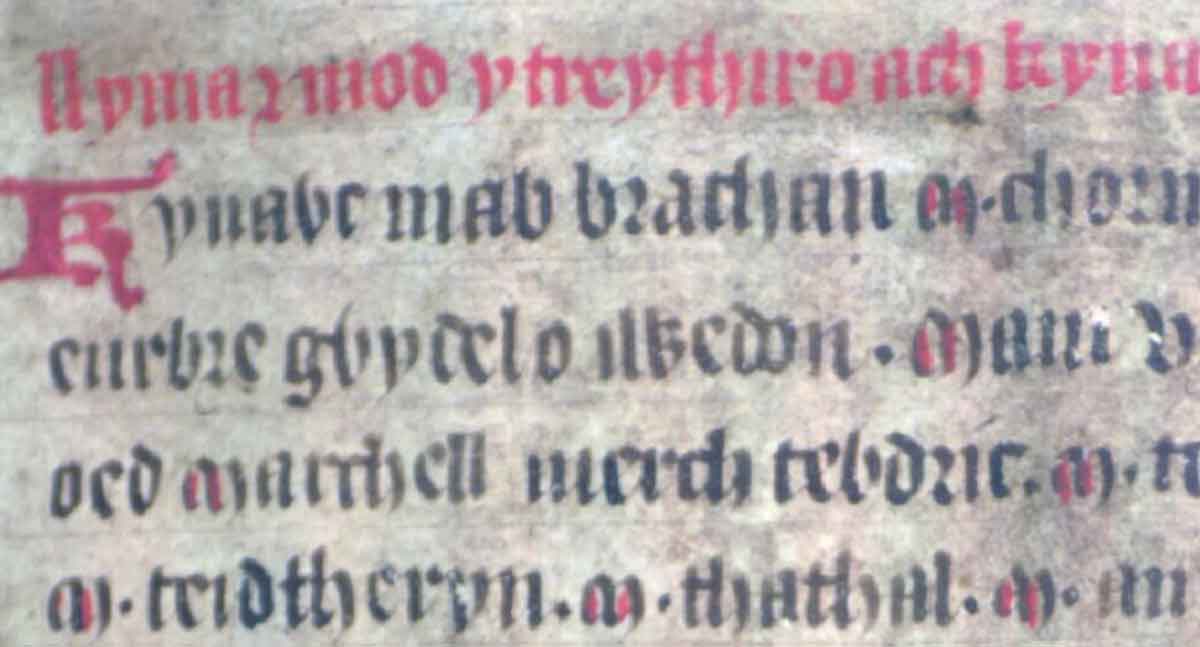 Llymar mod ytreythir o ach kyna
Kynaỽc mab brachan M. chorm
eurbre gỽydel o . Mam v
oed Marchell merch teỽdric. M. te
M. teidtheryn. M. thathal. M. an